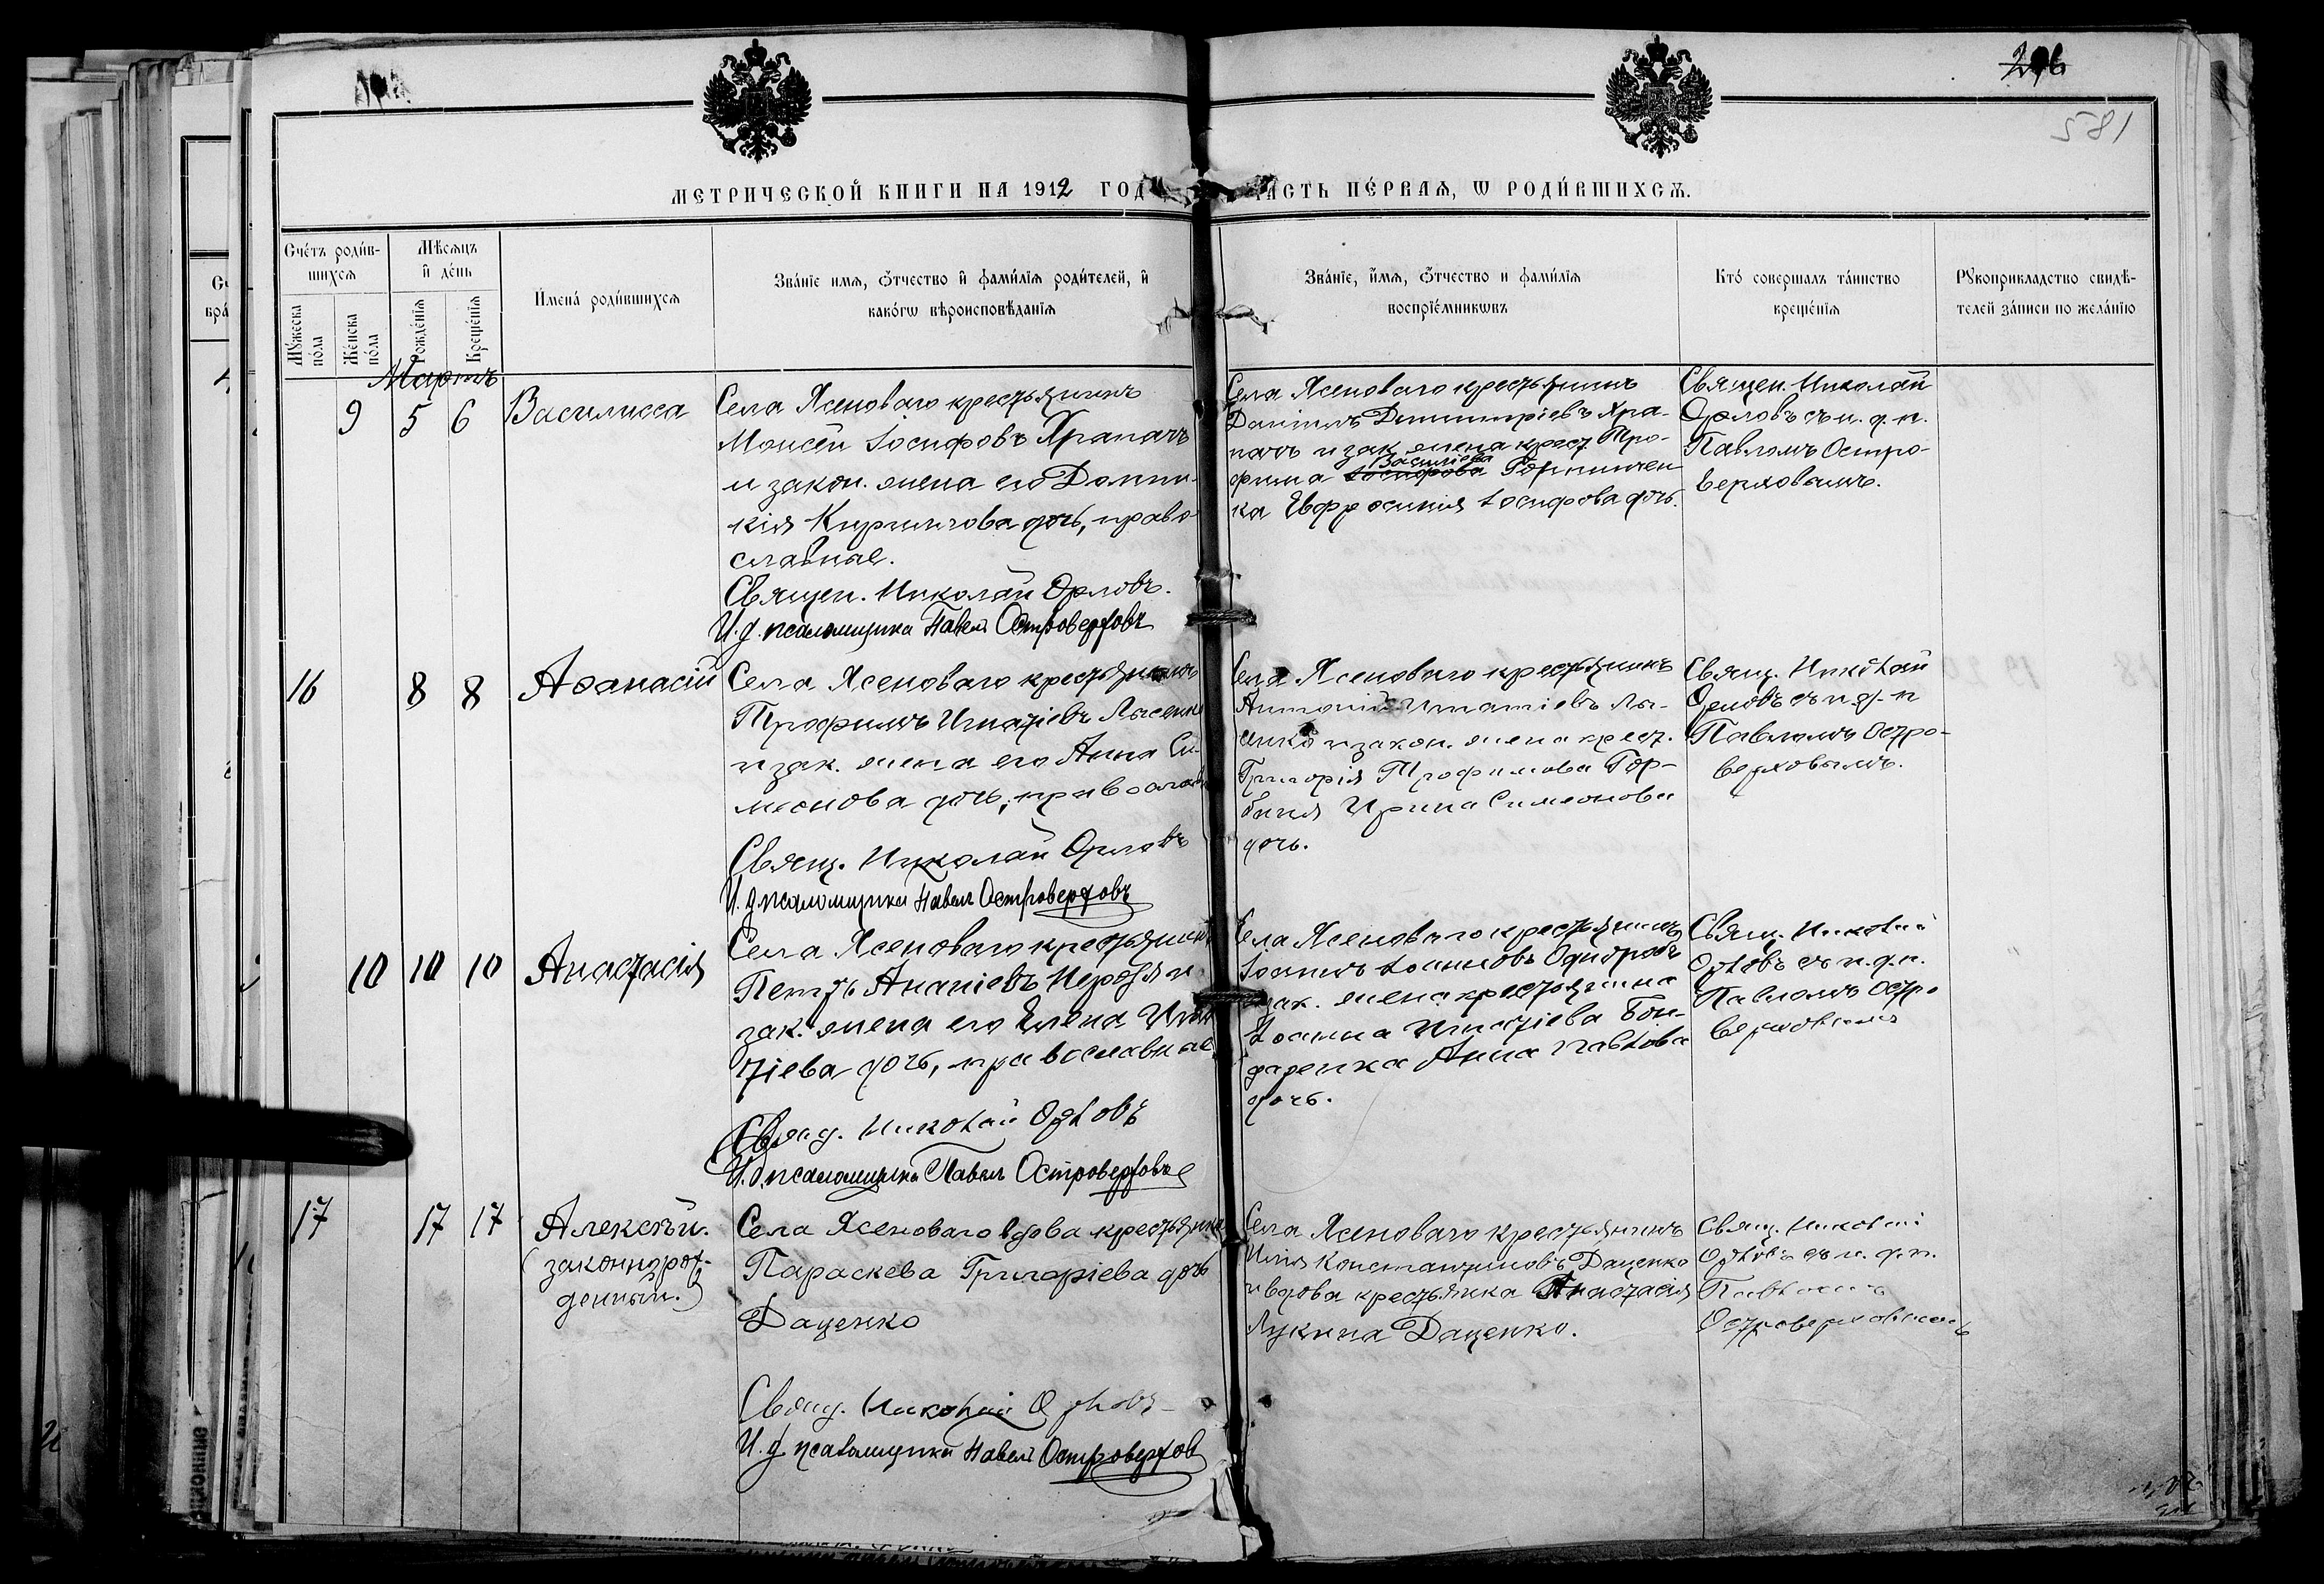 296
581
МЕТРИЧЕСКОЙ КНИГИ НА 1912 ГОД
ЧАСТЬ ПЕ́РВАЯ, Ѡ РОДИ́ВШИХСѦ.
Счéтъ роди́в-
шихсѧ
Мѣ́сѧцъ
и҆ дéнь
Мꙋ́жеска
пóла
Жéнска
пóла
Рождéнїѧ
Крещéнїѧ
И҆менá роди́вшихсѧ
Звáнїе имѧ, ѻ҆́тчество и҆ фами́лїѧ роди́телей, и҆
какóгѡ вѣроисповѣ́данїѧ
Звáнїе, и҆́мѧ, ѻ҆́тчество и фами́лїѧ
воспрїе́мникѡвъ
Ктó совершалъ тáинство
крещéнїѧ
Рꙋкоприкладство свидѣ́-
телей зáписи по желáнїю
Мартъ
9 5 6 Василисса
Села Ясеноваго крестьянинъ
Моисей Іосифовъ Храпачъ
и закон. жена его Домни-
кія Кириллова дочь, право-
славные.
Священ. Николай Орловъ.
И. д. псаломщика Павелъ Островерховъ
Села Ясеноваго крестьянинъ
Даніилъ Димитріевъ Хра-
пачъ и зак. жена крест. Тро-
фима Іосифова Васильева
ка Евфросинія Іосифова дочь.
Священ. Николай
Орловъ съ и. д. п.
Павломъ Остро-
верховымъ.
16 8 8 Аѳанасій
Села Ясеноваго крестьянинъ
Трофимъ Игнатіевъ Лысенко
и зак. жена его Анна Си-
меонова дочь, православ
Свящ. Николай Орловъ
И. д. псаломщика Павелъ Островерховъ
Села Ясеноваго крестьянинъ
Антоній Игнатіевъ Лы-
сенко и закон. жена крест.
Григорія Трофимова Гор-
баня Ирина Симеонова
дочь.
Свящ. Николай
Орловъ съ и. д. п
Павломъ Остро-
верховымъ.
10 10 10 Анастасія
Села Ясеноваго крестьянинъ
Петръ Ананіевъ и
зак. жена его Елена Игна
тіева дочь, православные
Свящ. Николай Орловъ
И. д. псаломщика Павелъ Островерховъ
Села Ясеноваго крестьянинъ
Іоаннъ Іоанновъ и
зак. жена крестьянина
Іоанна Игнатіева Бон-
даренка Анна Павлова
дочь.
Свящ. Николай
Орловъ съ и. д. п.
Павломъ Остро
верховымъ
17 17 17 Алексѣй.
(законнорож-
денный.)
Села Ясеноваго вдова крестьянка
Параскева Григоріева дочь
Даценко
Свящ. Николай Орловъ
И. д. псаломщика Павелъ Островерховъ
Села Ясеноваго крестьянинъ
Илія Константиновъ Даценко
и вдова крестьянка Анастасія
Лукина Даценко.
Свящ. Николай
Орловъ съ и. д. п.
Павломъ
Островерховымъ